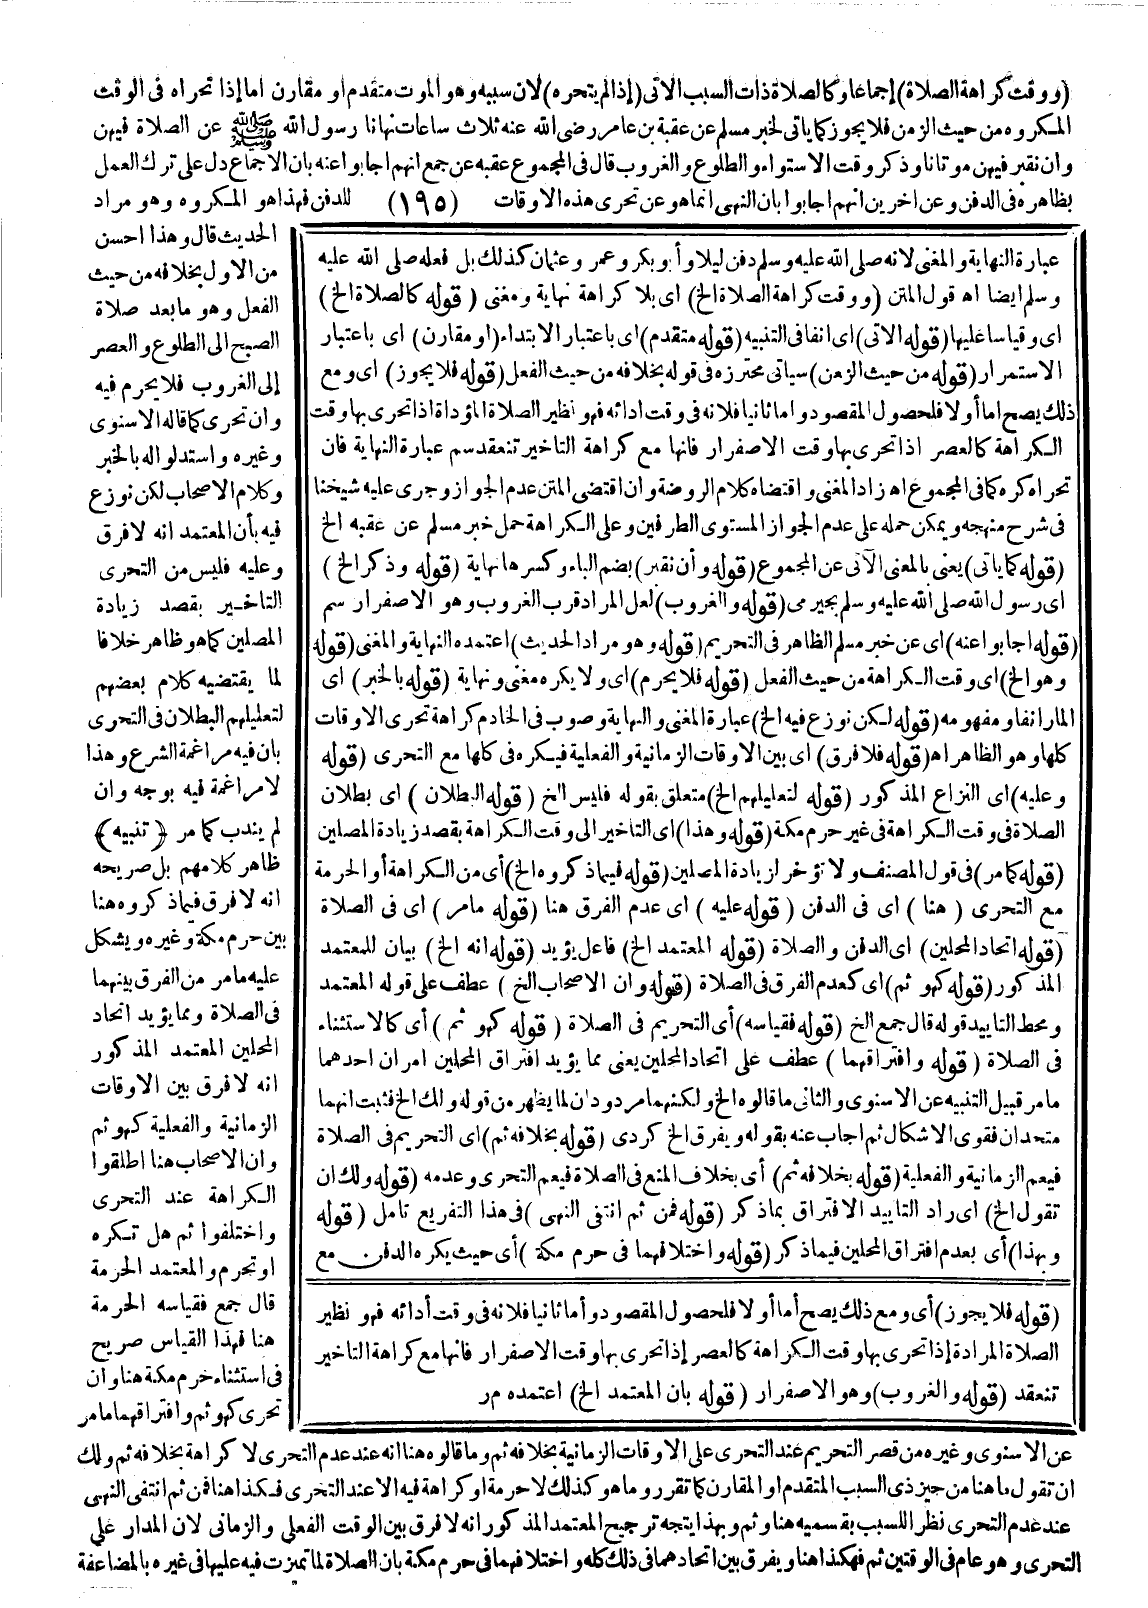 (ووقت كراهة الصلاة) إجماعا وكالصلاة ذات السبب الاتى (إذا لم يتحره) لان سببه وهو الموت متقدم او مقارن اما إذا تحراه فى الوقت
المكروه من حيث الزمن فلا يجوز كما ياتى لخبر مسلم عن عقبة بن عامر رضى الله عنه ثلاث ساعات نهانا رسول الله ﷺ عن الصلاة فيهن
وان نقبر فيهن موتانا وذكر وقت الاستواء والطلوع والغروب قال فى المجموع عقبه عن جمع انهم اجابوا عنه بان الاجماع دل على ترك العمل
بظاهره فى الدفن وعن اخرين انهم اجابوا بان النهى انما هو عن تحرى هذه الاوقات (١٩٥) للدفن فهذا هو المكروه وهو مراد
عبارة النهاية والمغنى لانه صلى الله عليه وسلم دفن ليلا وأبو بكر وعمر وعثمان كذلك بل فعله صلى الله عليه
وسلم ايضا اه قول المتن (ووقت كراهة الصلاة الخ) اى بلا كراهة نهاية ومغنى (قوله كالصلاة الخ)
اى وقياسا عليها (قوله الاتى) اى انفا فى التنبيه (قوله متقدم) اى باعتبار الابتداء (او مقارن) اى باعتبار
الاستمرار (قوله من حيث الزمن) سياتى محترزه فى قوله بخلافه من حيث الفعل (قوله فلا يجوز) اى ومع
ذلك يصح اما أولا فلحصول المقصود واما ثانيا فلانه فى وقت ادائه فهو نظير الصلاة المؤداة اذا تحرى بها وقت
الكراهة كالعصر اذا تحرى بها وقت الاصفرار فانها مع كراهة التاخير تنعقد سم عبارة النهاية فان
تحراه كره كما فى المجموع اه زاد المغنى واقتضاه كلام الروضة وان اقتضى المتن عدم الجواز وجرى عليه شيخنا
فى شرح منهجه ويمكن حمله على عدم الجواز المستوى الطرفين وعلى الكراهة حمل خبر مسلم عن عقبه الخ
(قوله كما ياتى) يعنى بالمعنى الآتى عن المجموع (قوله وأن نقبر) بضم الباء وكسرها نهاية (قوله وذكر الخ)
اى رسول الله صلى الله عليه وسلم بجيرمى (قوله والغروب) لعل المراد قرب الغروب وهو الاصفرار سم
(قوله اجابوا عنه) اى عن خبر مسلم الظاهر فى التحريم (قوله وهو مراد الحديث) اعتمده النهاية والمغنى (قوله
وهو الخ) اى وقت الكراهة من حيث الفعل (قوله فلا يحرم) اى ولا يكره مغنى ونهاية (قوله بالخبر) اى
المار انفا ومفهومه (قوله لكن نوزع فيه الخ) عبارة المغنى والنهاية وصوب فى الخادم كراهة تحرى الاوقات
كلها وهو الظاهر اه (قوله فلا فرق) اى بين الاوقات الزمانية والفعلية فيكره فى كلها مع التحرى (قوله
وعليه) اى النزاع المذكور (قوله لتعليلهم الخ) متعلق بقوله فليس الخ (قوله البطلان) اى بطلان
الصلاة فى وقت الكراهة فى غير حرم مكة (قوله وهذا) اى التاخير الى وقت الكراهة بقصد زيادة المصلين
(قوله كما مر) فى قول المصنف ولا تؤخر لزيادة المصلين (قوله فيما ذكروه الخ) أى من الكراهة أو الحرمة
مع التحرى (هنا) اى فى الدفن (قوله عليه) اى عدم الفرق هنا (قوله مامر) اى فى الصلاة
(قوله اتحاد المحلين) اى الدفن والصلاة (قوله المعتمد الخ) فاعل يؤيد (قوله انه الخ) بيان للمعتمد
المذكور (قوله كهو ثم) اى كعدم الفرق فى الصلاة (قوله وان الاصحاب الخ) عطف على قوله المعتمد
ومحط التاييد قوله قال جمع الخ (قوله فقياسه) أى التحريم فى الصلاة (قوله كهو ثم) أى كالاستثناء
فى الصلاة (قوله وافتراقهما) عطف على اتحاد المحلين يعنى مما يؤيد افتراق المحلين امران احدهما
مامر قبيل التنبيه عن الاسنوى والثانى ما قالوه الخ ولكنهما مردودان لما يظهر من قوله ولك الخ فثبت انهما
متحدان فقوى الاشكال ثم اجاب عنه بقوله ويفرق الخ كردى (قوله بخلافه ثم) اى التحريم فى الصلاة
فيعم الزمانية والفعلية (قوله بخلافه ثم) أى بخلاف المنع فى الصلاة فيعم التحرى وعدمه (قوله ولك ان
تقول الخ) اى راد التاييد الافتراق بما ذكر (قوله فمن ثم انتفى النهى) فى هذا التفريع تامل (قوله
وبهذا) أى بعدم افتراق المحلين فيما ذكر (قوله واختلافهما فى حرم مكة) أى حيث يكره الدفن مع
(قوله فلا يجوز) أى ومع ذلك يصح أما أولا فلحصول المقصود وأما ثانيا فلانه فى وقت أدائه فهو نظير
الصلاة المرادة إذا تحرى بها وقت الكراهة كالعصر إذا تحرى بها وقت الاصفرار فانها مع كراهة التاخير
تنعقد (قوله والغروب) وهو الاصفرار (قوله بان المعتمد الخ) اعتمده مر
الحديث قال وهذا احسن
من الاول بخلافه من حيث
الفعل وهو ما بعد صلاة
الصبح الى الطلوع والعصر
إلى الغروب فلا يحرم فيه
وان تحرى كما قاله الاسنوى
وغيره واستدلوا له بالخبر
وكلام الاصحاب لكن نوزع
فيه بأن المعتمد انه لا فرق
وعليه فليس من التحرى
التاخير بقصد زيادة
المصلين كما هو ظاهر خلافا
لما يقتضيه كلام بعضهم
لتعليلهم البطلان فى التحرى
بان فيه مراغمة الشرع وهذا
لا مراغمة فيه بوجه وان
لم يندب كما مر ﴿تنبيه﴾
ظاهر كلامهم بل صريحه
انه لا فرق فيما ذكروه هنا
بين حرم مكة وغيره ويشكل
عليه مامر من الفرق بينهما
فى الصلاة ومما يؤيد اتحاد
المحلين المعتمد المذكور
انه لا فرق بين الاوقات
الزمانية والفعلية كهو ثم
وان الاصحاب هنا اطلقوا
الكراهة عند التحرى
واختلفوا ثم هل تكره
او تحرم والمعتمد الحرمة
قال جمع فقياسه الحرمة
هنا فهذا القياس صريح
فى استثناء حرم مكة هنا وان
تحرى كهو ثم وافتراقهما مامر
عن الاسنوى وغيره من قصر التحريم عند التحرى على الاوقات الزمانية بخلافه ثم وما قالوه هنا انه عند عدم التحرى لا كراهة بخلافه ثم ولك
ان تقول ما هنا من حيز ذى السبب المتقدم او المقارن كما تقرر وما هو كذلك لا حرمة او كراهة فيه الا عند التحرى فكذا هنا فمن ثم انتفى النهى
عند عدم التحرى نظرا للسبب بقسميه هنا وثم وبهذا يتجه ترجيح المعتمد المذكور انه لا فرق بين الوقت الفعلى والزمانى لان المدار على
التحرى وهو عام فى الوقتين ثم فهكذا هنا ويفرق بين اتحادهما فى ذلك كله واختلافهما فى حرم مكة بان الصلاة لما تميزت فيه عليها فى غيره بالمضاعفة